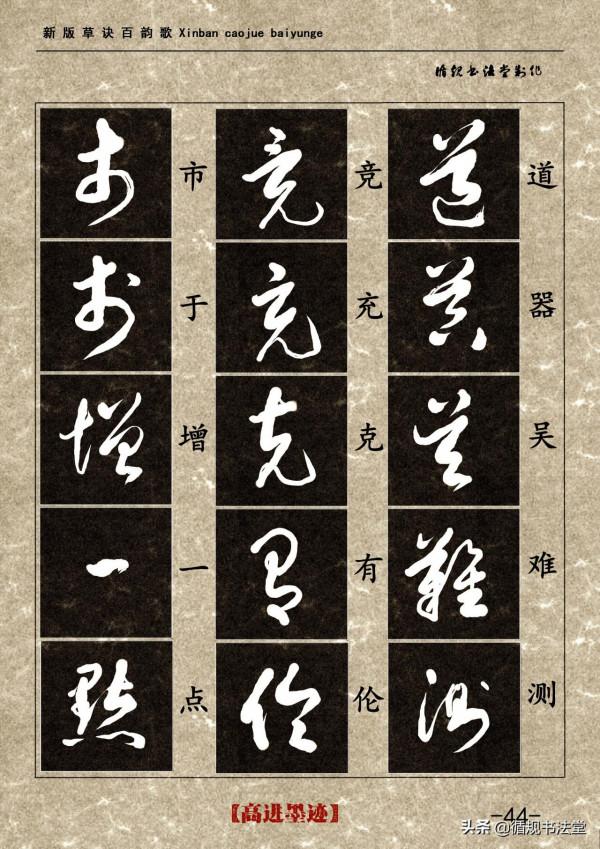 新版草诀百韵歌 Xinban caojue baiyunge
循规书法堂制作
道器吴难测
竞充克有伦
市于增一点
【高进墨迹】
-44-
头条@循规书法堂